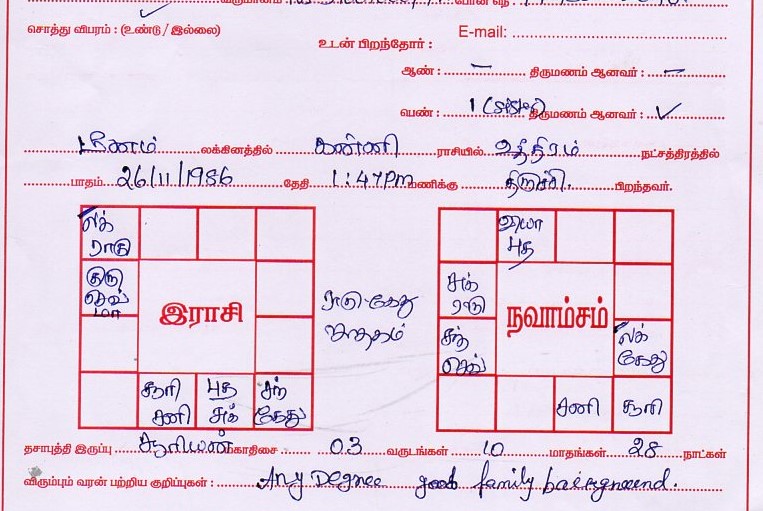 சொத்து விபரம் : (உண்டு / இல்லை)
உடன் பிறந்தோர் : E-mail:
ஆண் : – திருமணம் ஆனவர் : –
பெண் : 1 (sister) திருமணம் ஆனவர் : ✓
மீனம் லக்கினத்தில் கன்னி ராசியில் உத்திரம் நட்சத்திரத்தில்
பாதம் 26/11/1986 தேதி 1:47PM மணிக்கு திருச்சி. பிறந்தவர்.
லக்
ராகு
குரு
செவ்
மா
இராசி
சூரி
சனி
புத
சுக்
சந்
கேது
ராகு-கேது
ஜாதகம்
வியா
புத
சுக்
ராகு
நவாம்சம்
சந்
செவ்
லக்
கேது
சனி
சூரி
தசாபுத்தி இருப்பு சூரியன் மகாதிசை 03 வருடங்கள் 10 மாதங்கள் 28 நாட்கள்
விரும்பும் வரன் பற்றிய குறிப்புகள் : Any Degree good family background.